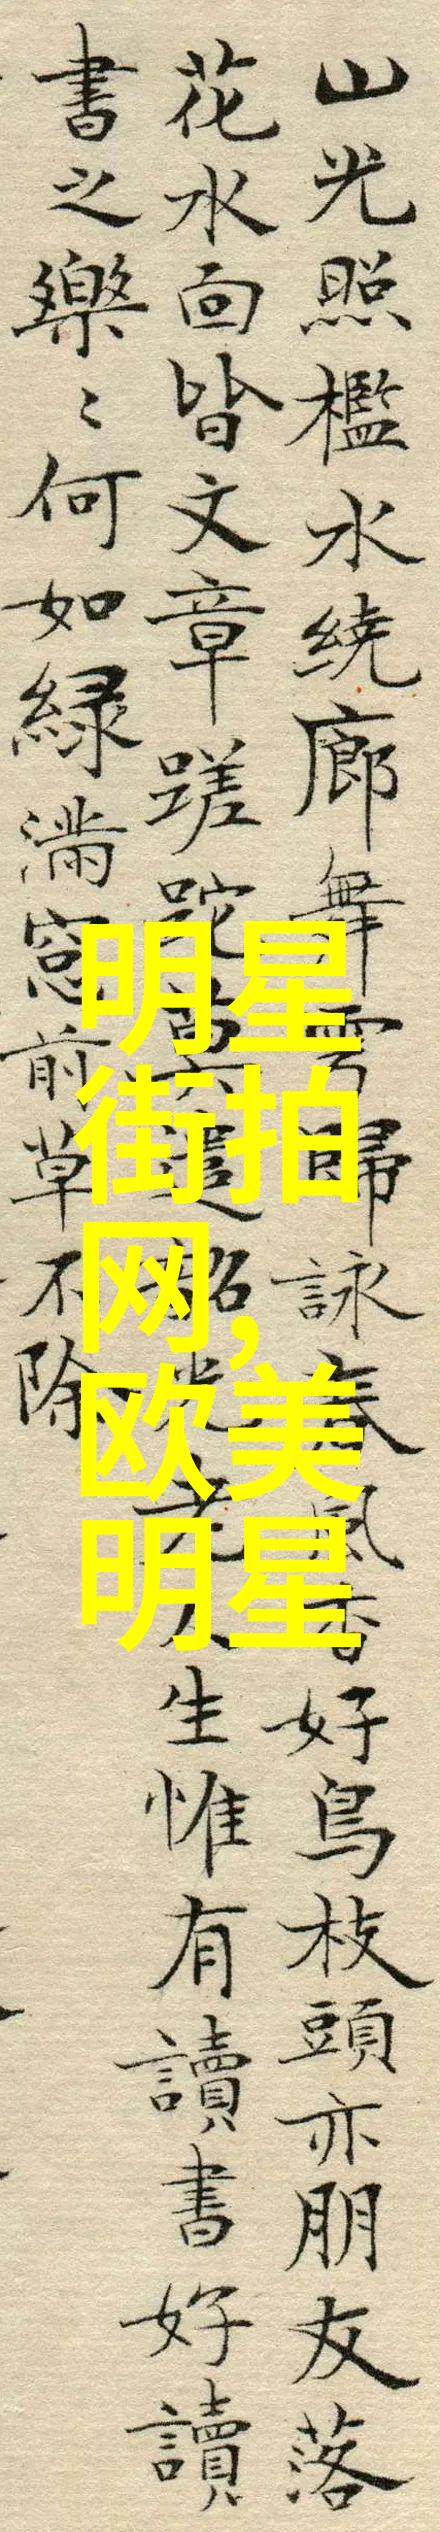 山光照檻水繞廊舞雩歸詠春風香好鳥枝頭亦朋友落
花水面皆文章蹉跎莫遣韶光老人生惟有讀書好讀
書之樂〻何如緑滿窓前草不除
明星
街拍
网,
欧美
明星